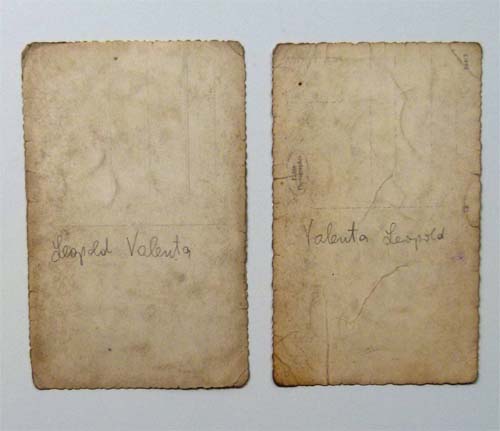 Leopold Valenta
Valenta Leopold